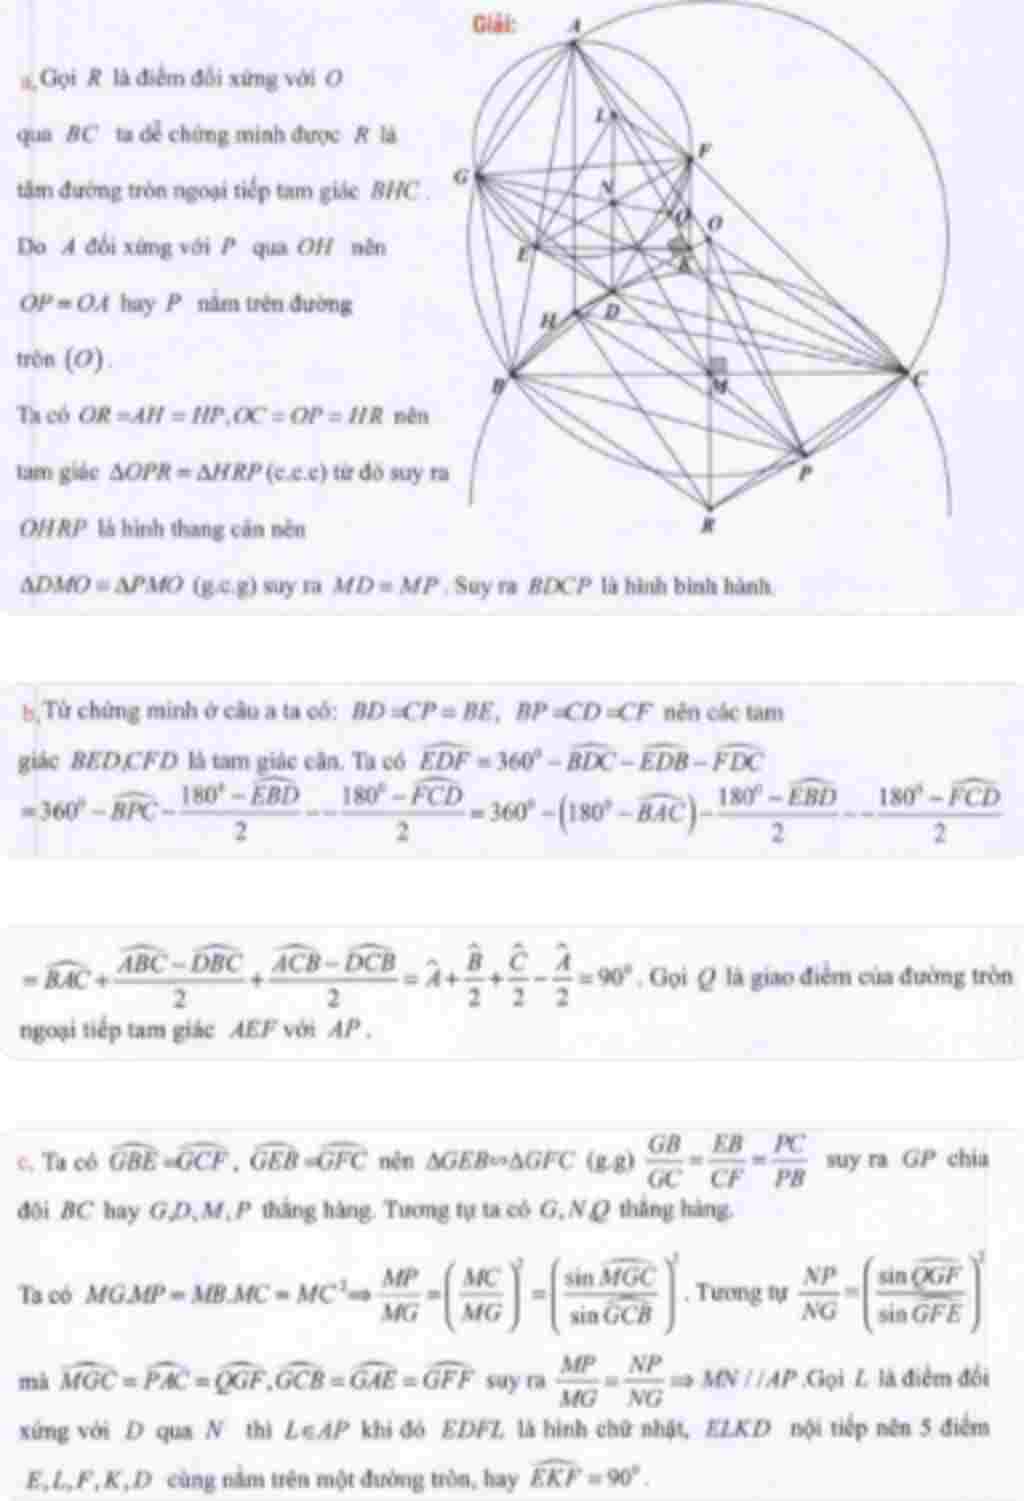 Giải:
a, Gọi R là điểm đối xứng với O
qua BC ta dễ chứng minh được R là
tâm đường tròn ngoại tiếp tam giác BHC .
Do A đối xứng với P qua OH nên
OP = OA hay P nằm trên đường
tròn (O) .
Ta có OR = AH = HP, OC = OP = HR nên
tam giác ΔOPR = ΔHRP (c.c.c) từ đó suy ra
OHRP là hình thang cân nên
ΔDMO = ΔPMO (g.c.g) suy ra MD = MP . Suy ra BDCP là hình bình hành.
A
L
F
G
N
Q
O
E
K
H
D
B
M
C
P
R
b, Từ chứng minh ở câu a ta có: BD = CP = BE, BP = CD = CF nên các tam
giác BED,CFD là tam giác cân. Ta có \widehat{EDF} = 360⁰ − \widehat{BDC} − \widehat{EDB} − \widehat{FDC}
= 360⁰ − \widehat{BPC} − \frac{180⁰ − \widehat{EBD}}{2} − − \frac{180⁰ − \widehat{FCD}}{2} = 360⁰ − (180⁰ − \widehat{BAC}) − \frac{180⁰ − \widehat{EBD}}{2} − − \frac{180⁰ − \widehat{FCD}}{2}
= \widehat{BAC} + \frac{\widehat{ABC} − \widehat{DBC}}{2} + \frac{\widehat{ACB} − \widehat{DCB}}{2} = \hat{A} + \frac{\hat{B}}{2} + \frac{\hat{C}}{2} − \frac{\hat{A}}{2} = 90⁰ . Gọi Q là giao điểm của đường tròn
ngoại tiếp tam giác AEF với AP .
c. Ta có \widehat{GBE} = \widehat{GCF} , \widehat{GEB} = \widehat{GFC} nên ΔGEB∽ΔGFC (g.g) \frac{GB}{GC} = \frac{EB}{CF} = \frac{PC}{PB} suy ra GP chia
đôi BC hay G,D,M,P thẳng hàng. Tương tự ta có G,N,Q thẳng hàng.
Ta có MG.MP = MB.MC = MC² ⇒ \frac{MP}{MG} = \left(\frac{MC}{MG}\right)² = \left(\frac{sin \widehat{MGC}}{sin \widehat{GCB}}\right)² . Tương tự \frac{NP}{NG} = \left(\frac{sin \widehat{QGF}}{sin \widehat{GFE}}\right)²
mà \widehat{MGC} = \widehat{PAC} = \widehat{QGF}, \widehat{GCB} = \widehat{GAE} = \widehat{GFF} suy ra \frac{MP}{MG} = \frac{NP}{NG} ⇒ MN //AP .Gọi L là điểm đối
xứng với D qua N thì L∈AP khi đó EDFL là hình chữ nhật, ELKD nội tiếp nên 5 điểm
E,L,F,K,D cùng nằm trên một đường tròn, hay \widehat{EKF} = 90⁰ .